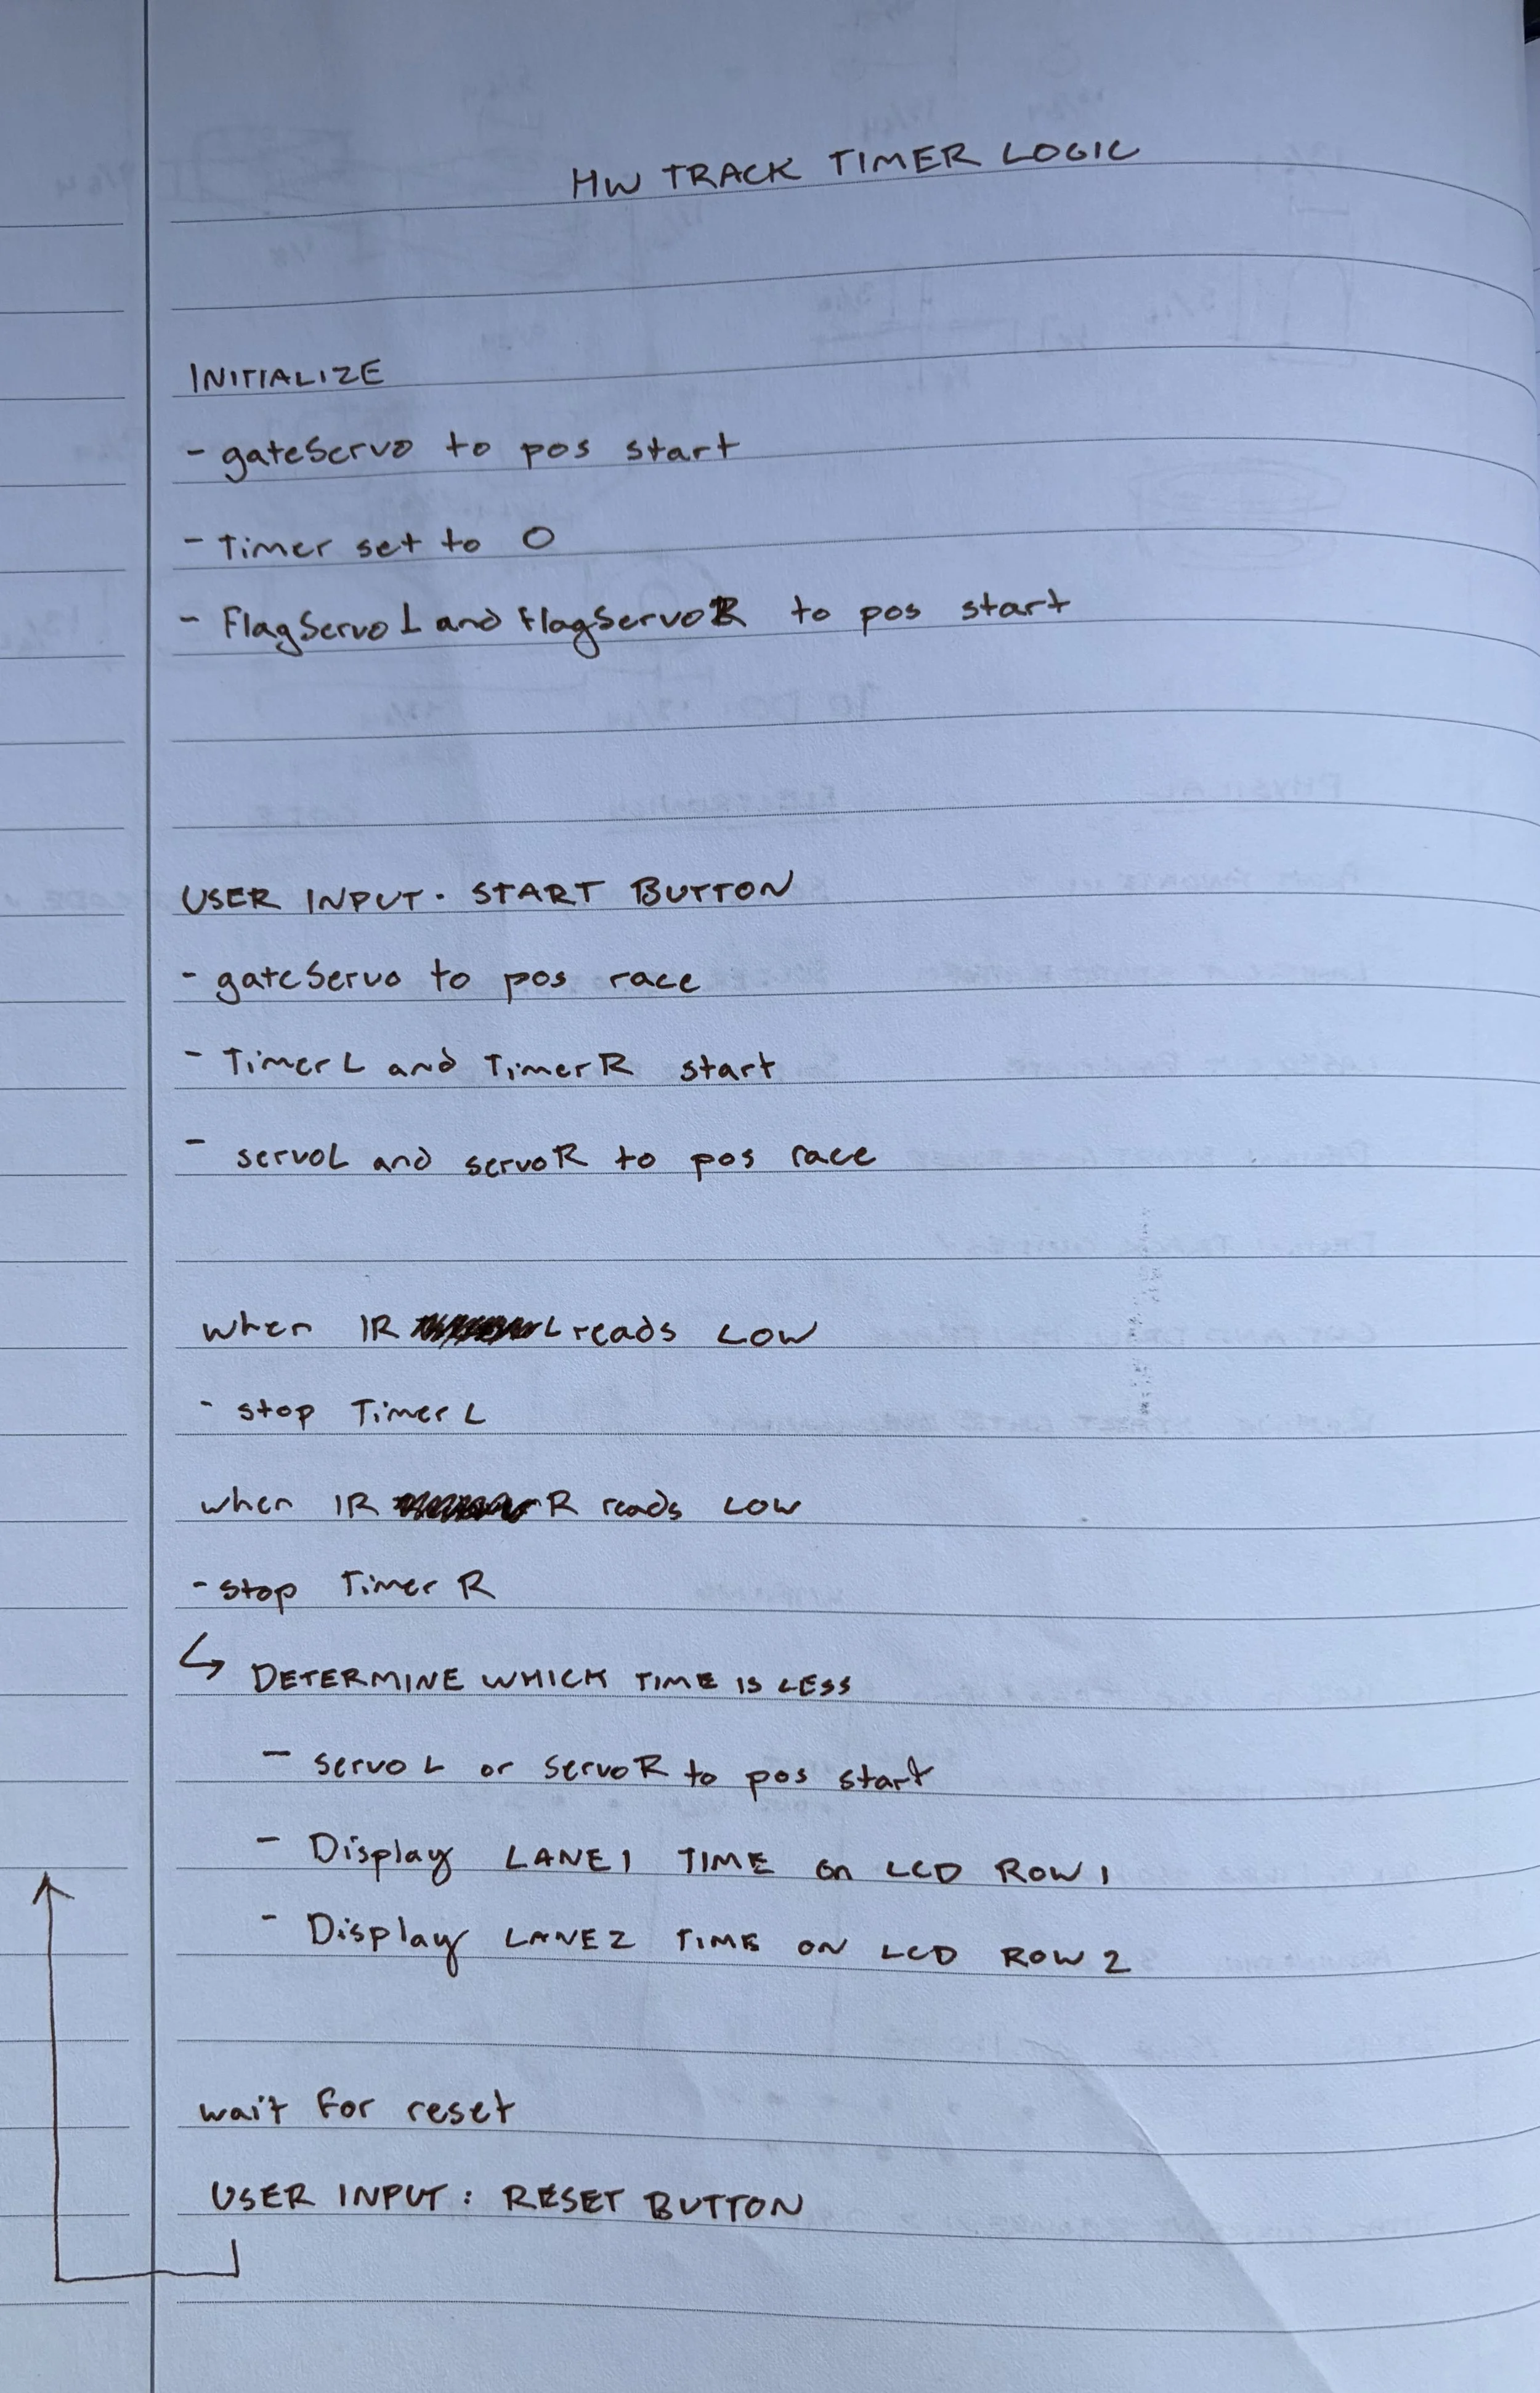 HW TRACK TIMER LOGIC
INITIALIZE
- gateServo to pos start
- Timer set to 0
- FlagServo L and flagServo R to pos start
USER INPUT. START BUTTON
- gateServo to pos race
- Timer L and Timer R start
- servoL and servoR to pos race
when IR L reads LOW
- stop Timer L
when IR R reads LOW
- stop Timer R
↳ DETERMINE WHICH TIME IS LESS
- servo L or servo R to pos start
- Display LANE 1 TIME on LCD ROW 1
- Display LANE 2 TIME ON LCD ROW 2
wait for reset
USER INPUT: RESET BUTTON